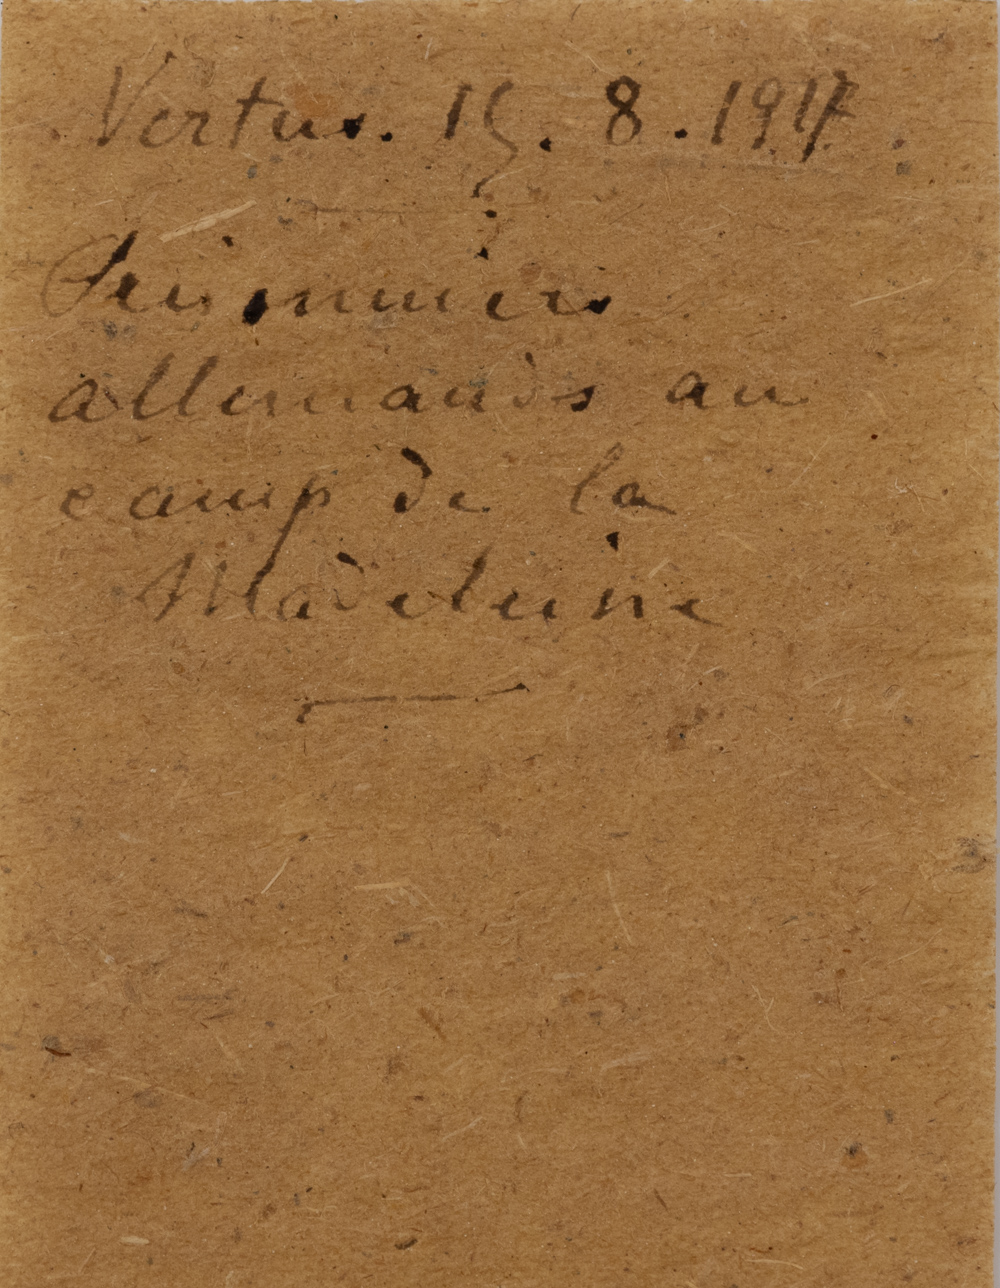 Vertus. 15. 8. 1917.
Prisonniers
allemands au
camp de la
Madeleine